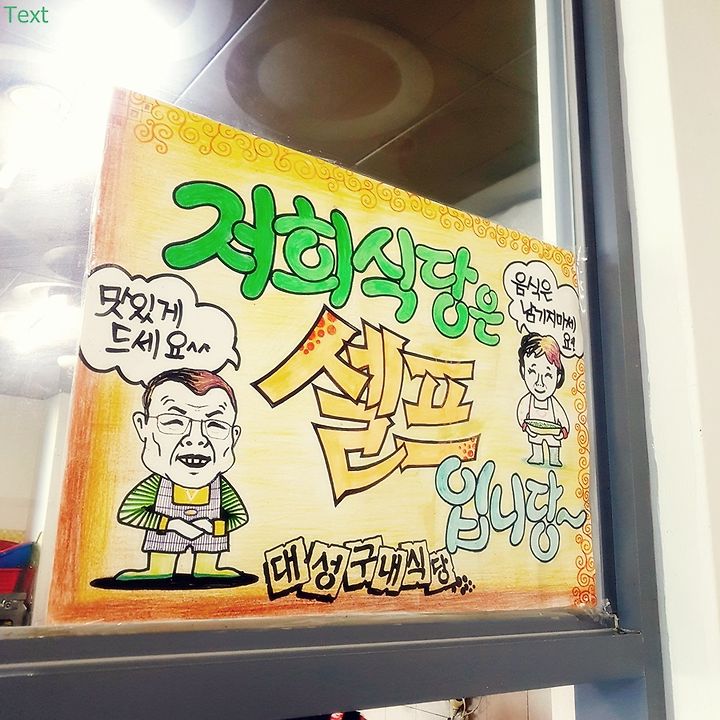 Text
저희식당은
맛있게
드세요^^
음식은
남기지마세
요
셀프
입니당~
대성구내식당